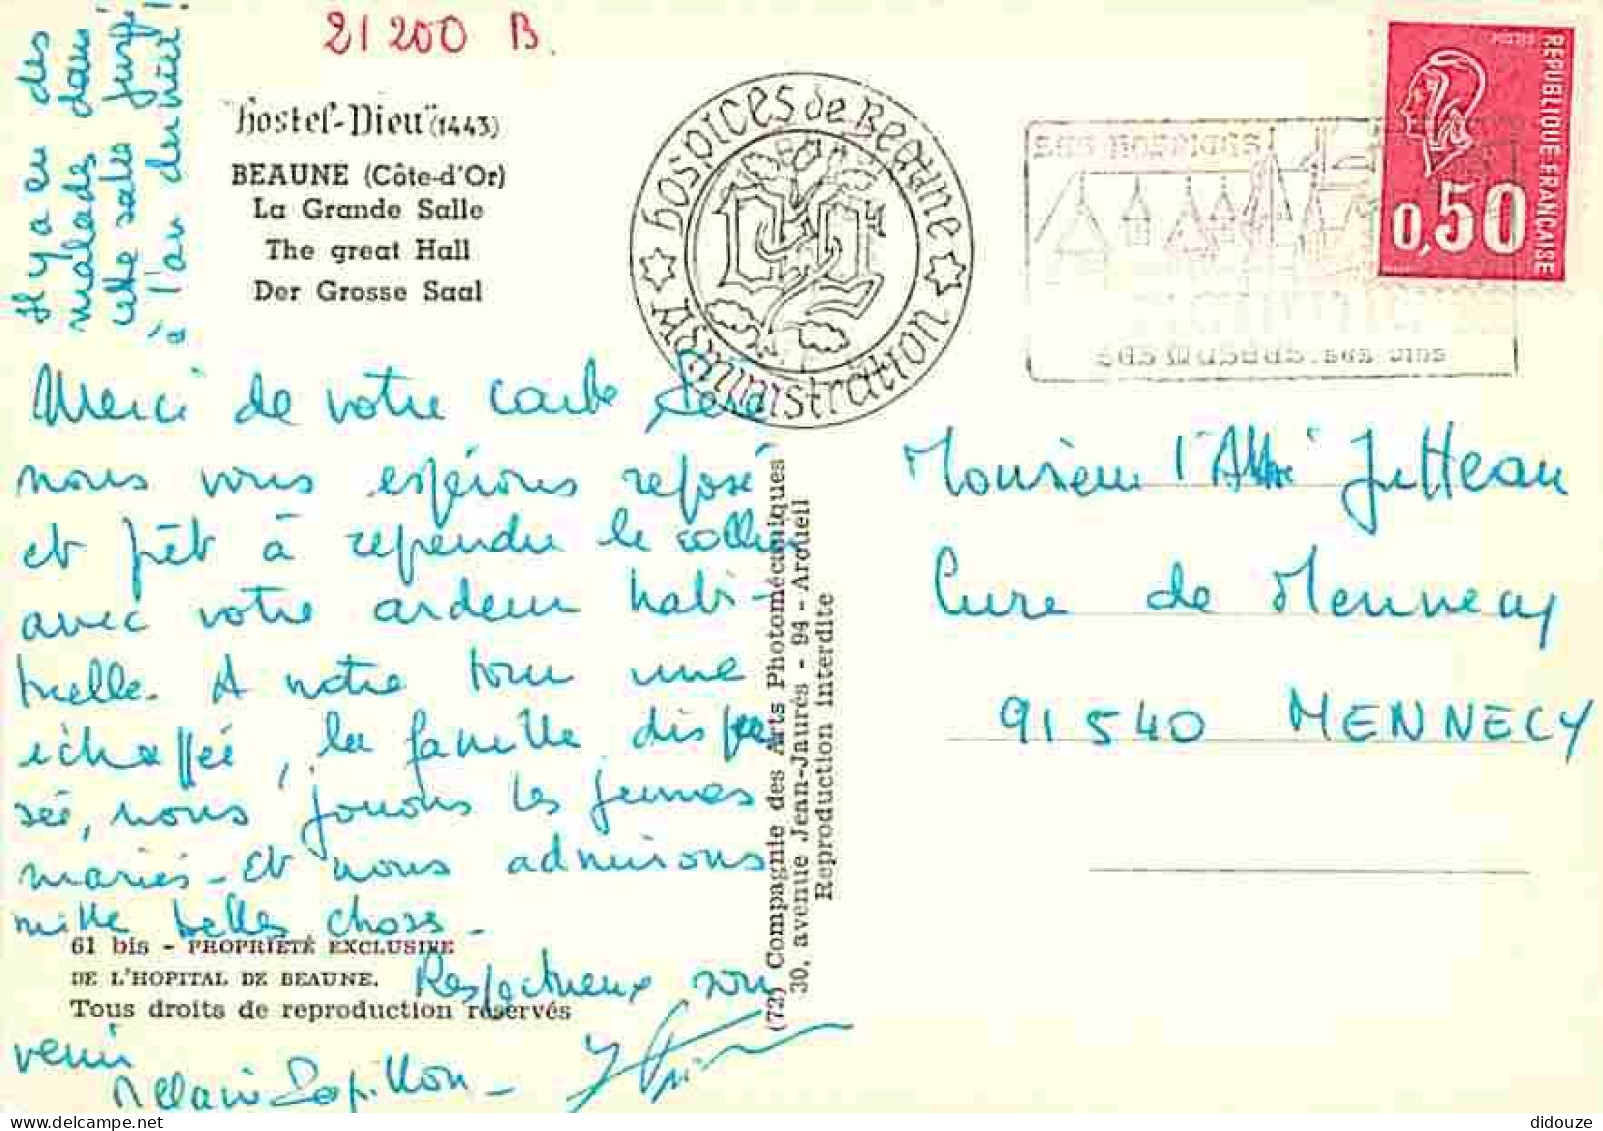 21 200 B.
Il y a eu des
malades dans
cette salle jusqu'
à l'an dernier !
"hostel-Dieu" (1443)
BEAUNE (Côte-d'Or)
La Grande Salle
The great Hall
Der Grosse Saal
hospices de Beaune
Administration
REPUBLIQUE FRANÇAISE
0,50
Merci de votre carte Père
nous vous espérons reposé
et prêt à reprendre le collier
avec votre ardeur habi-
tuelle. A notre tour une
échappée, la famille disper
sée, nous jouons les jeunes
mariés - Et nous admirons
mille belles choses -
Respectueux sou
venir
Papillon -
61 bis - PROPRIÉTÉ EXCLUSIVE
DE L'HOPITAL DE BEAUNE.
Tous droits de reproduction réservés
(72) Compagnie des Arts Photomécaniques
30, avenue Jean-Jaurés - 94 - Arcueil
Reproduction interdite
Monsieur l'Abbé Jutteau
Cure de Mennecy
91540 MENNECY
didouze